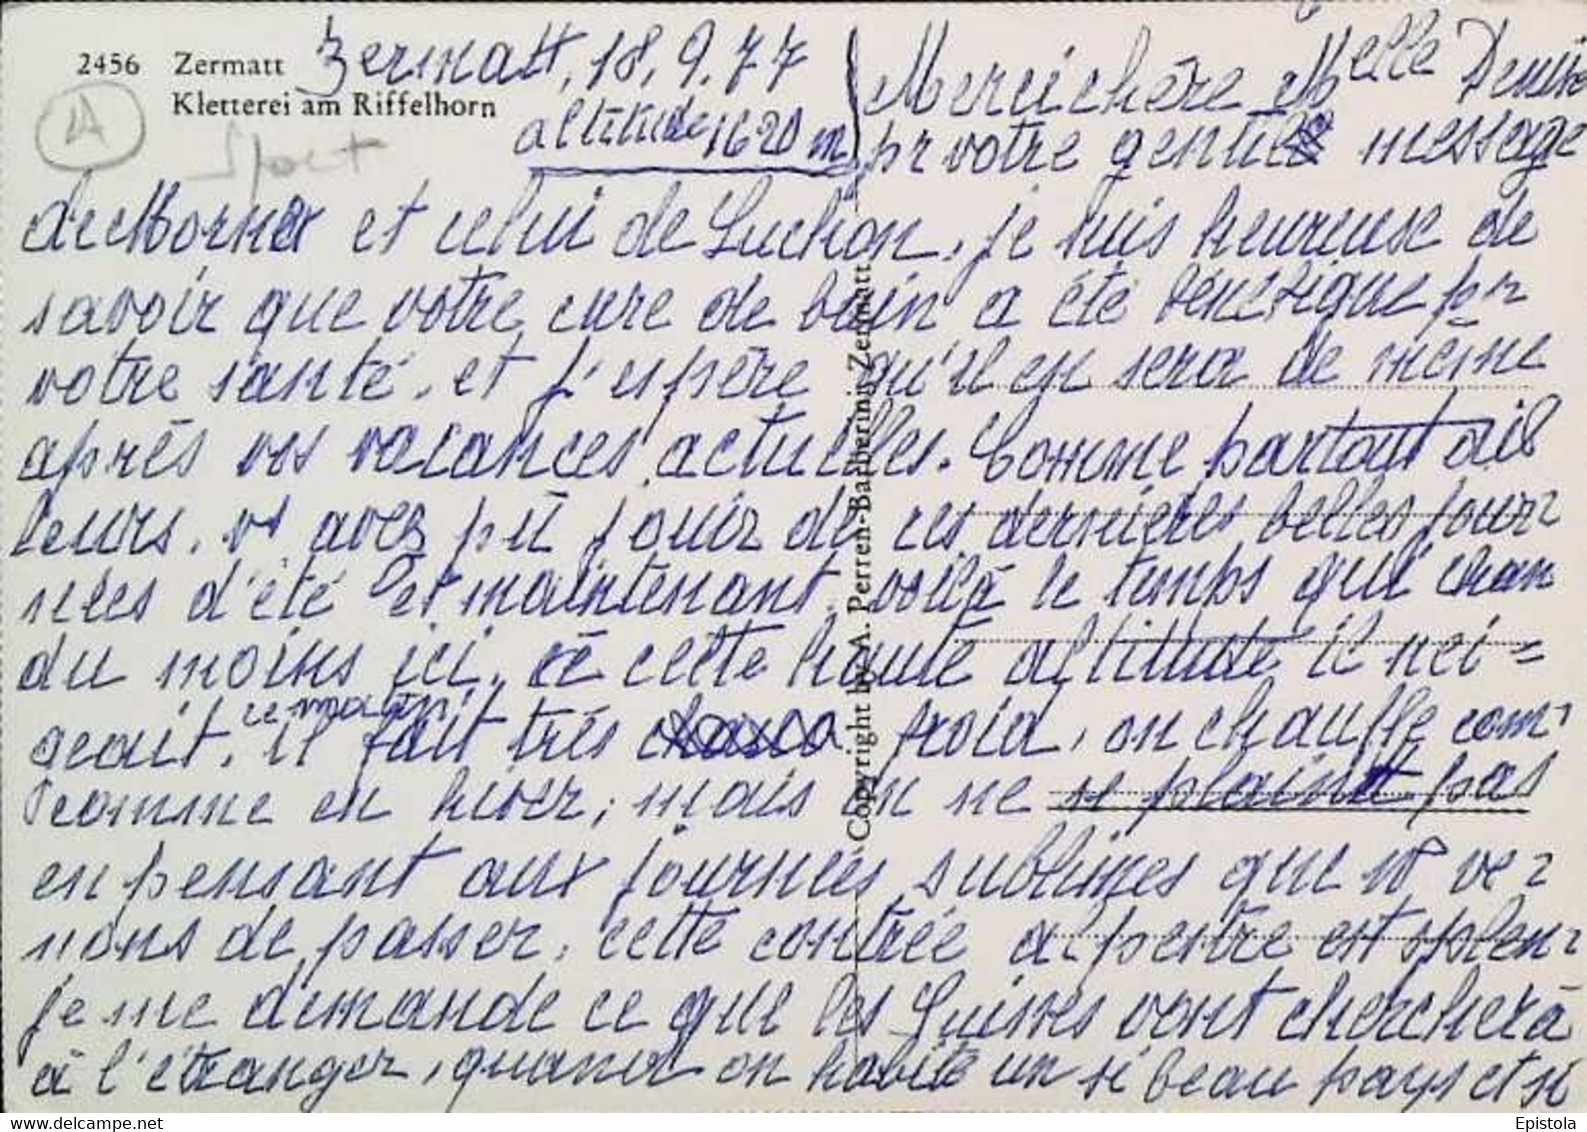 2456 Zermatt
Kletterei am Riffelhorn
A
Sport
Zermatt, 18.9.77
altitude 1620 m
Merci chère Melle Denise
pr votre gentil message
de et celui de Luchon, je suis heureuse de
savoir que votre cure de bain a été bénéfique pr
votre santé, et j'espère qu'il en sera de même
après vos vacances actuelles. Comme partout ail
leurs, vs avez pû jouir de ces dernières belles jour=
nées d'été et maintenant voilà le temps qui chan
du moins ici, à cette haute altitude il nei=
geait, ce matin il fait très froid, on chauffe com=
comme en hiver, mais on ne se plaint pas
en pensant aux journées sublimes que ns ve=
nons de passer, cette contrée alpestre est splen=
je me demande ce que les Suisses vont chercher à
à l'étranger, quand on habite un si beau pays et si
Copyright by A. Perren-Barberini, Zermatt
delcampe.net
Epistola